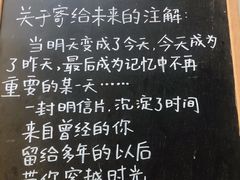 关于寄给未来的注解:
当明天变成了今天,今天成为
了昨天,最后成为记忆中不再
重要的某一天……
一封明信片,沉淀了时间
来自曾经的你
留给多年的以后
带你穿越时光